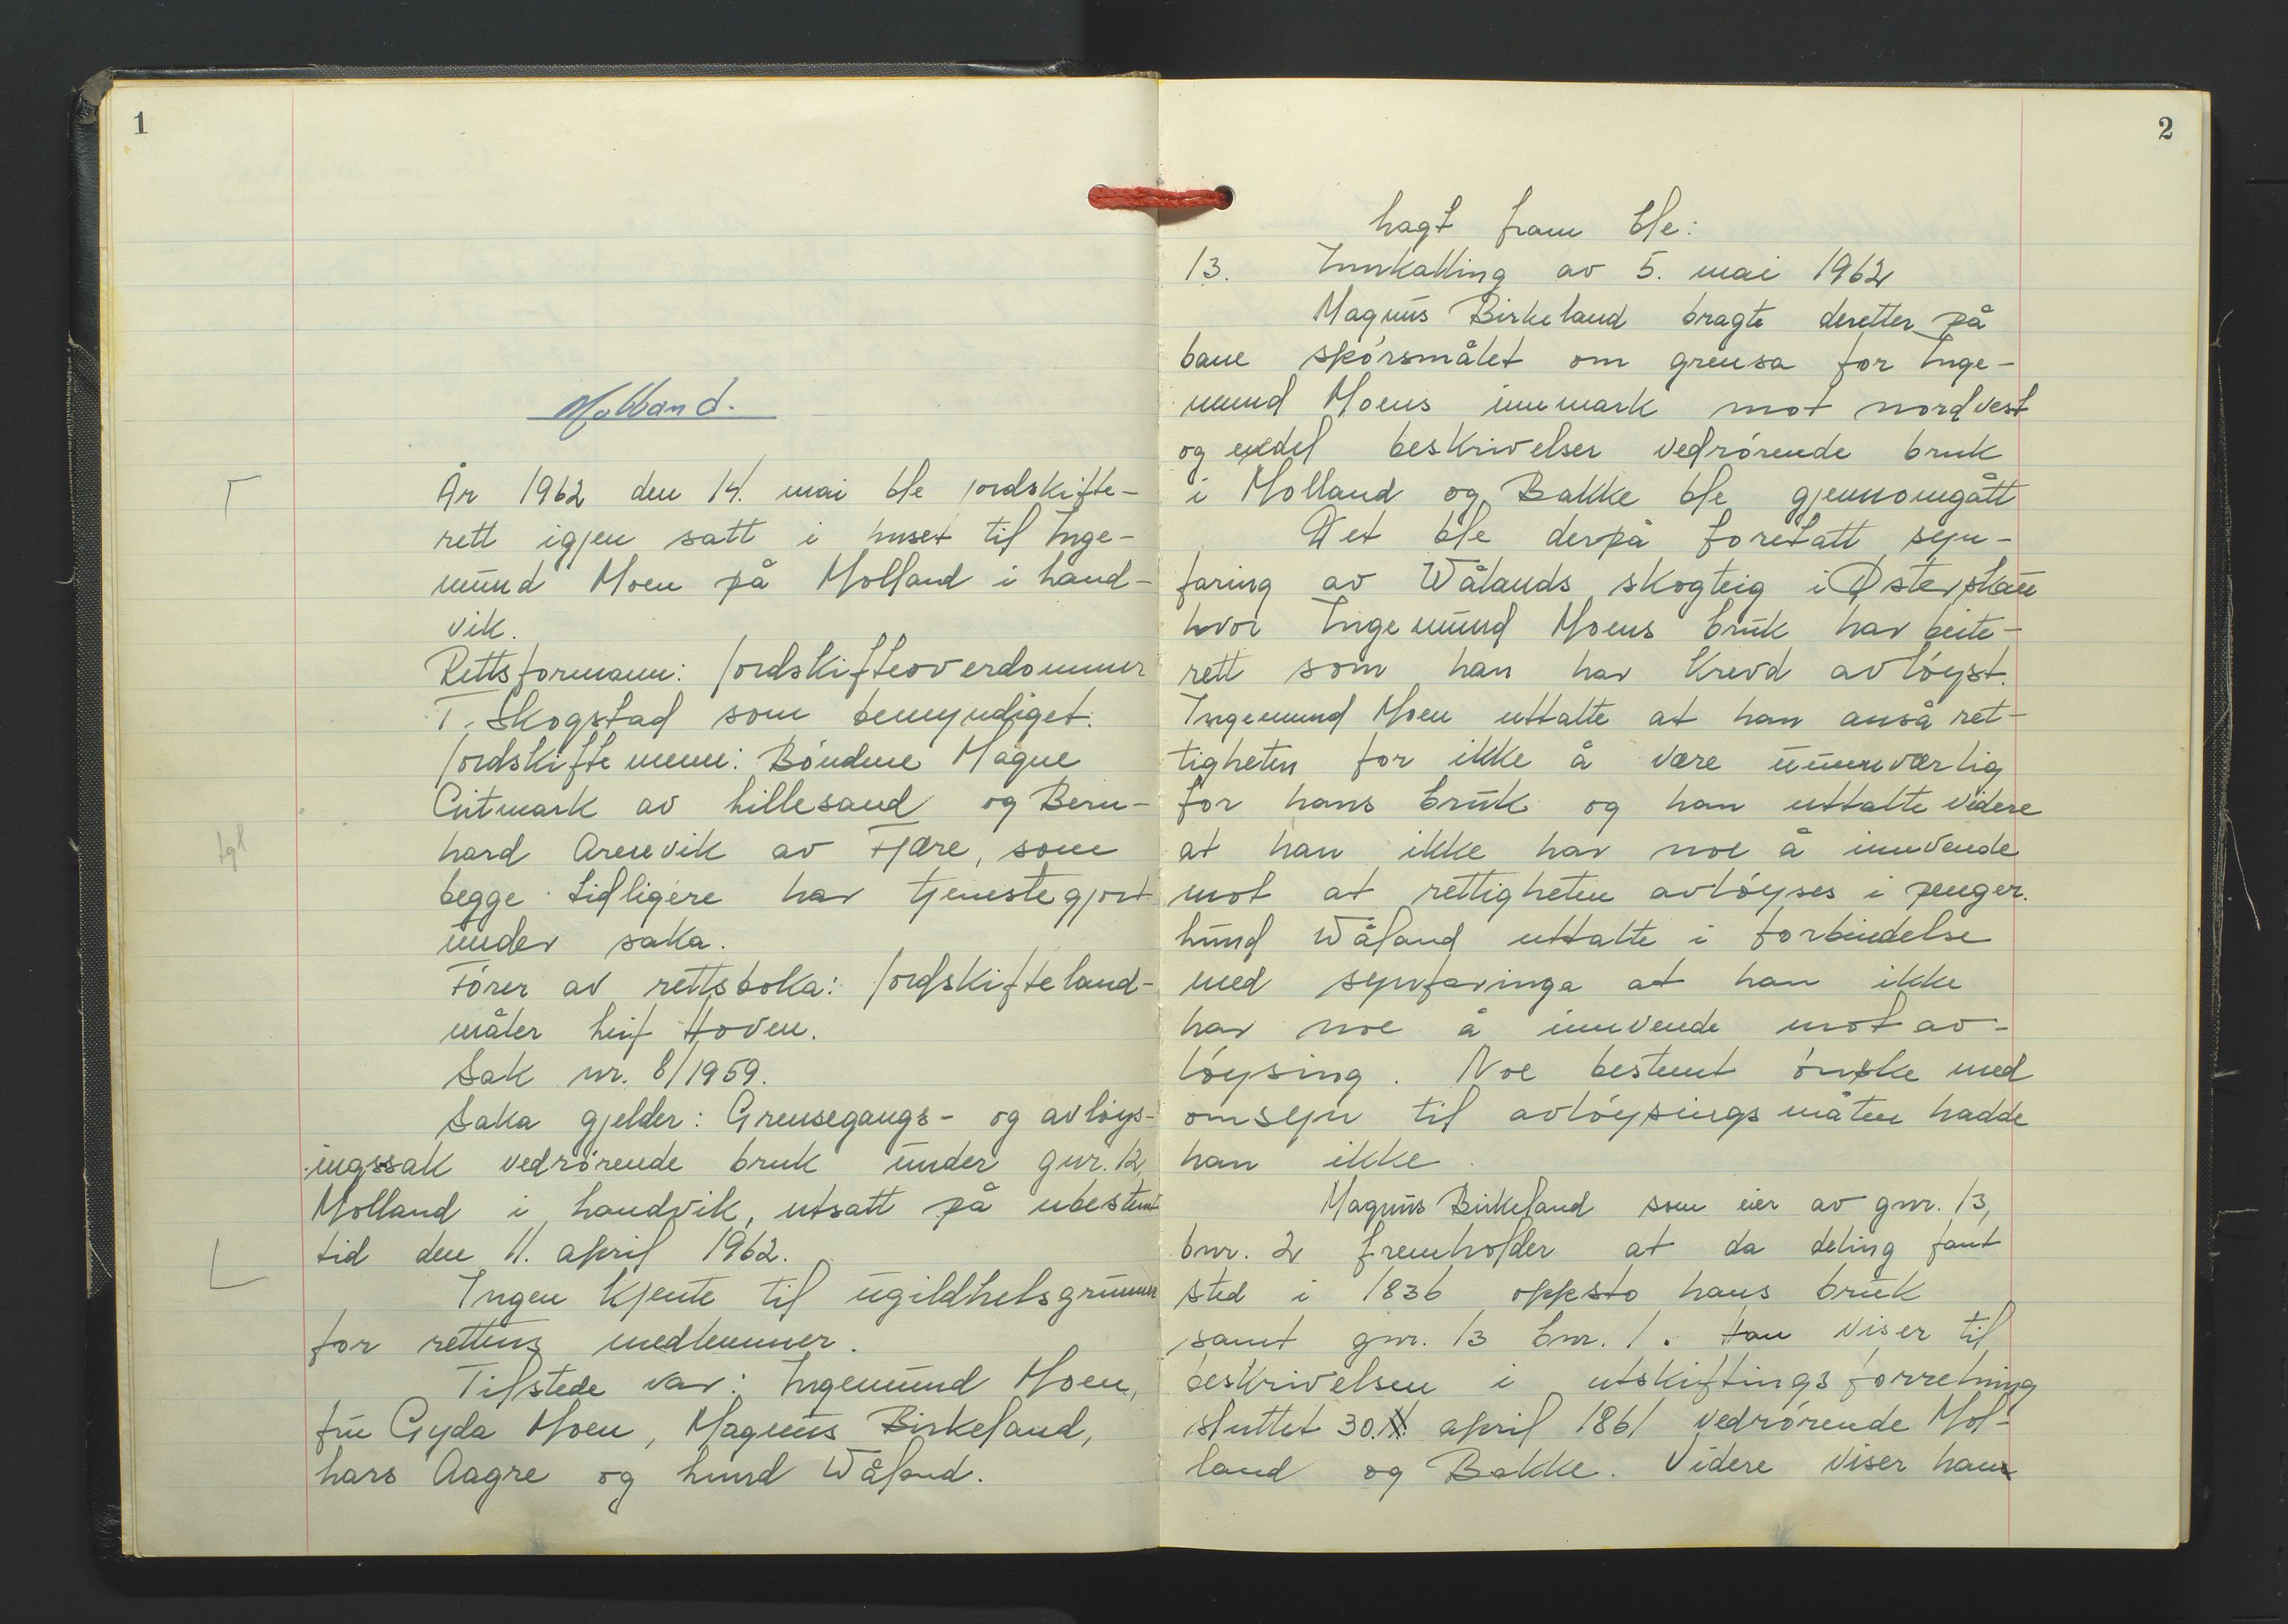 1
Molland.
År 1962 den 14. mai ble jordskifte-
rett igjen satt i huset til Inge-
mund Moen på Molland i Land-
vik.
Rettsformann: Jordskifteoverdommer
T. Skogstad som bemyndiget.
Jordskiftemenn: Bóndene Magne
Gitmark av Lillesand og Bern-
hard Arenevik av Fjære, som
begge tidligere har tjenestegjort
under saka.
Fórer av rettsboka: Jordskifteland-
måler Leif Hoven.
Sak nr. 8/1959.
Saka gjelder: Grensegangs- og avlóys-
ingssak vedrórende bruk under gnr. 12,
Molland i Landvik, utsatt på ubestemt
tid den 11. april 1962.
Ingen kjente til ugildhetsgrunner
for rettens medlemmer.
Tilstede var: Ingemund Moen,
fru Gyda Moen, Magnus Birkeland,
Lars Aagre og Lund Wåland.
tgl
2
Lagt fram ble:
13. Innkalling av 5. mai 1962
Magnus Birkeland bragte deretter på
bane spórsmålet om grensa for Inge-
mund Moens innmark mot nordvest
og endel beskrivelser vedrórende bruk
i Molland og Bakke ble gjennomgått
Det ble derpå foretatt syn-
faring av Wålands skogteig i Østerskau
hvor Ingemund Moens bruk har beite-
rett som han har krevd avlóyst.
Ingemund Moen uttalte at han anså ret-
tigheten for ikke å være uunnværlig
for hans bruk og han uttalte videre
at han ikke har noe å innvende
mot at rettigheten avlóyses i penger.
Lund Wåland uttalte i forbindelse
med synfaringa at han ikke
har noe å innvende mot av-
lóysing. Noe bestemt ónske med
omsyn til avlóysingsmåten hadde
han ikke.
Magnus Birkeland som eier av gnr. 13,
bnr. 2 fremholder at da deling fant
sted i 1836 oppsto hans bruk
samt gnr. 13 bnr. 1. Han viser til
beskrivelsen i utskiftingsforretning
sluttet 30. april 1861 vedrórende Mol-
land og Bakke. Videre viser han